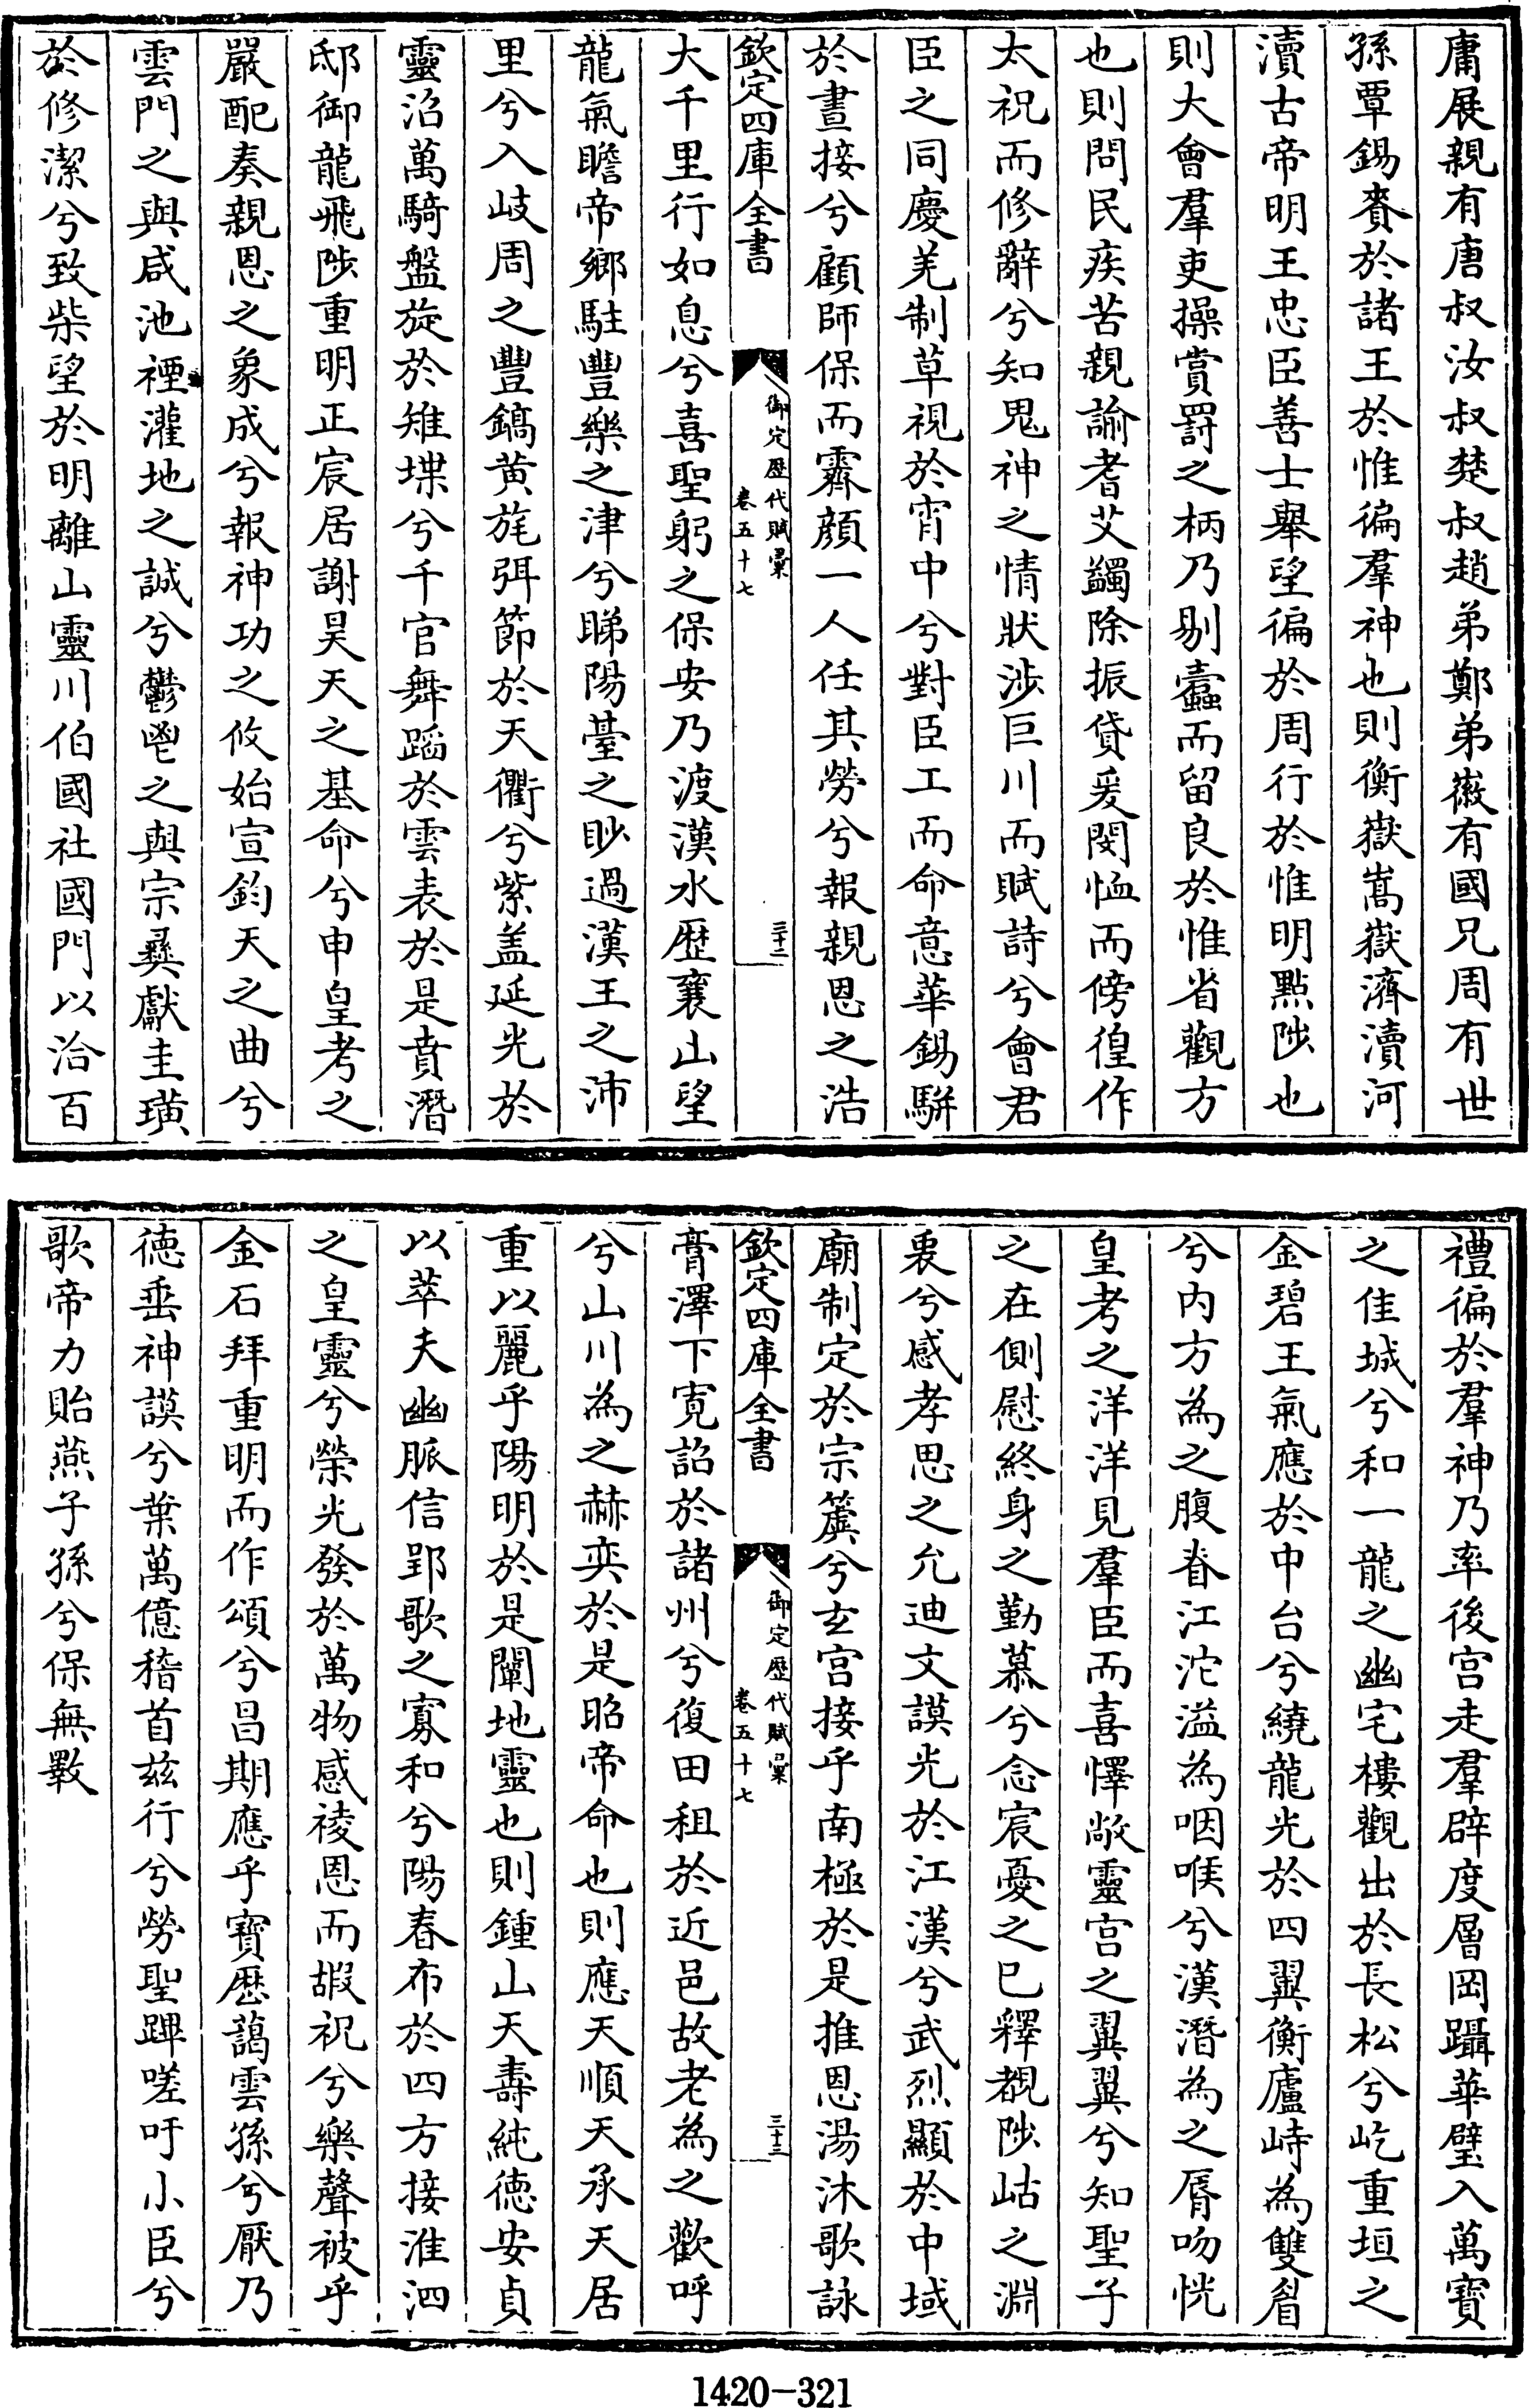 庸展親有唐叔汝叔楚叔趙弟鄭弟嶶有國兄周有世
孫覃錫賚於諸王於惟徧羣神也則衡嶽嵩嶽濟瀆河
瀆古帝明王忠臣善士舉望徧於周行於惟明㸃陟也
則大會羣吏操賞罰之柄乃剔蠧而留良於惟省觀方
也則問民疾苦親諭耆艾蠲除振貸爰閔恤而傍徨作
太祝而修辭兮知鬼神之情狀涉巨川而賦詩兮會君
臣之同慶羌制草視於宵中兮對臣工而命意華錫騈
於晝接兮顧師保而霽顔一人任其勞兮報親恩之浩
欽定四庫全書
御定歴代賦彚
卷五十七
三十二
大千里行如息兮喜聖躬之保安乃渡漢水歴襄山望
龍氣瞻帝鄉駐豐樂之津兮睇陽臺之眇過漢王之沛
里兮入岐周之豐鎬黄旄弭節於天衢兮紫盖延光於
靈沼萬騎盤旋於雉堞兮千官舞蹈於雲表於是賁潛
邸御龍飛陟重明正宸居謝昊天之基命兮申皇考之
嚴配奏親恩之象成兮報神功之攸始宣鈞天之曲兮
雲門之與咸池禋灌地之誠兮鬱鬯之與宗彞獻圭璜
於修潔兮致柴望於明離山靈川伯國社國門以洽百
禮徧於羣神乃率後宫走羣辟度層岡躡華璧入萬寶
之佳城兮和一龍之幽宅樓觀出於長松兮屹重垣之
金碧王氣應於中台兮繞龍光於四翼衡廬峙為雙眉
兮内方為之腹脊江沱溢為咽喉兮漢潛為之脣吻恍
皇考之洋洋見羣臣而喜懌敞靈宫之翼翼兮知聖子
之在側慰終身之勤慕兮念宸憂之已釋覩陟岵之淵
衷兮感孝思之允迪文謨光於江漢兮武烈顯於中域
廟制定於宗簴兮玄宫接乎南極於是推恩湯沐歌詠
欽定四庫全書
御定歴代賦彚
卷五十七
三十三
膏澤下寛詔於諸州兮復田租於近邑故老為之歡呼
兮山川為之赫奕於是昭帝命也則應天順天承天居
重以麗乎陽明於是闡地靈也則鍾山天壽純徳安貞
以萃夫幽脈信郢歌之寡和兮陽春布於四方接淮泗
之皇靈兮榮光發於萬物感祾恩而嘏祝兮樂聲被乎
金石拜重明而作頌兮昌期應乎寶厯藹雲孫兮厭乃
徳垂神謨兮葉萬億稽首兹行兮勞聖蹕嗟吁小臣兮
歌帝力貽燕子孫兮保無斁
1420-321